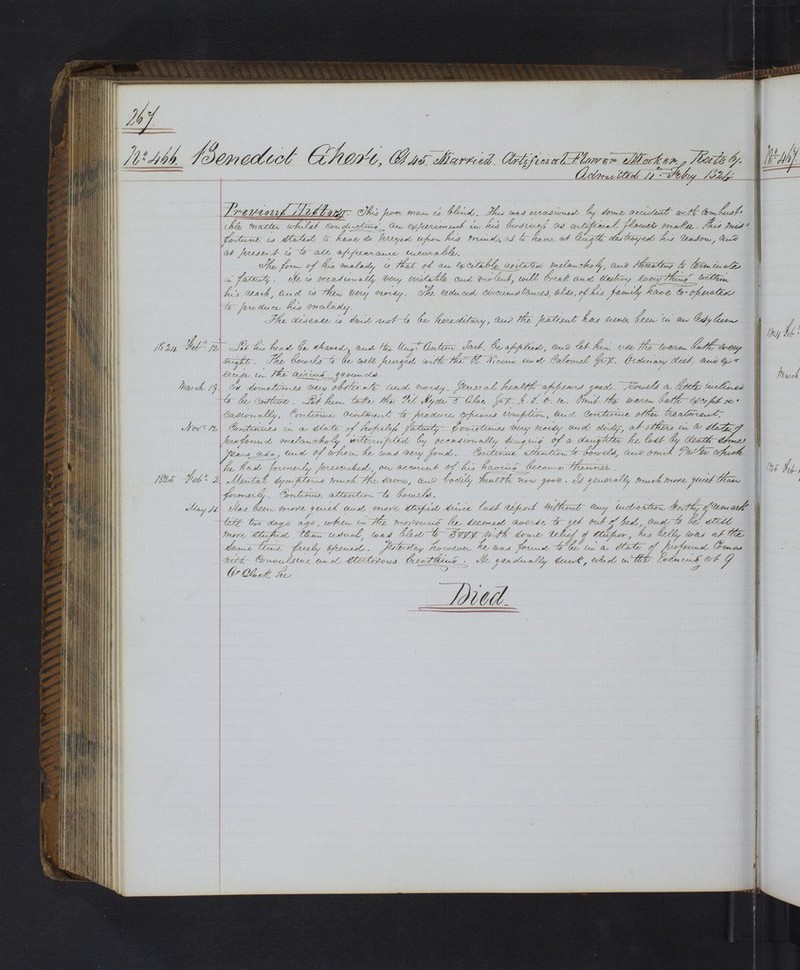 267
No. 466 Benedict Cheri, Æt 45 Married. Artificial Flower Maker
Admitted 11th Feby 1824
Previous History This poor man is blind. This was occasioned by some accident with Combusti=
ble matter whilst conducting an experiment in his business as artificial flower maker. This mis=
fortune is stated to have so preyed upon his mind, as to have at length destroyed his reason, and
at present is to all appearance incurable.
The form of his malady is that of an excitable agitated melancholy, and threatens to terminate
in fatuity. He is occasionally very irritable and violent, will break and destroy everything within
his reach, and is then very noisy. The reduced circumstances, also, of his family have co-operated
to produce his malady.
The disease is said not to be hereditary, and the patient has never been in an Asylum
1824 Feb. 12 Let his head be shaved, and the Ungt Antim Tart. be applied, and let him use the warm bath every
night. The bowels to be well purged with the Ol Ricini and Calomel Gr X. Ordinary diet, and ex=
ercise in the airing grounds.
March 19. Is sometimes very obstinate and noisy. General health appears good. Bowels a little inclined
to be costive. Let him take the Pil Hydr & Aloe Gr X. Omit the warm bath except oc=
casionally. Continue ointment to produce copious eruption, and continue other treatment.
Novr 12 Continues in a state of hopeless fatuity. Sometimes very noisy and dirty, at others in a state of
profound melancholy interrupted by occasionally singing of a daughter he lost by death some
years ago, and of whom he was very fond. Continue attention to bowels, and omit Porter which
he had formerly prescribed, on account of his having become thinner.
1825 Feb. 2 Mental symptoms much the same, and bodily health now good. Is generally much more quiet than
formerly. Continue attention to bowels.
May 21 Has been more quiet and more stupid since last report without any indication worthy of remark
till two days ago, when in the morning he seemed averse to get out of bed, and to be still
more stupid than usual, was bled to with some relief of stupor, his belly was at the
same time freely opened. Yesterday however he was found to be in a state of profound Coma
with Convulsive and stertorous breathing. He gradually sunk, and in the Evening at 9
O'Clock he
Died
No. 467
1824 Feb
March
1825 Feb